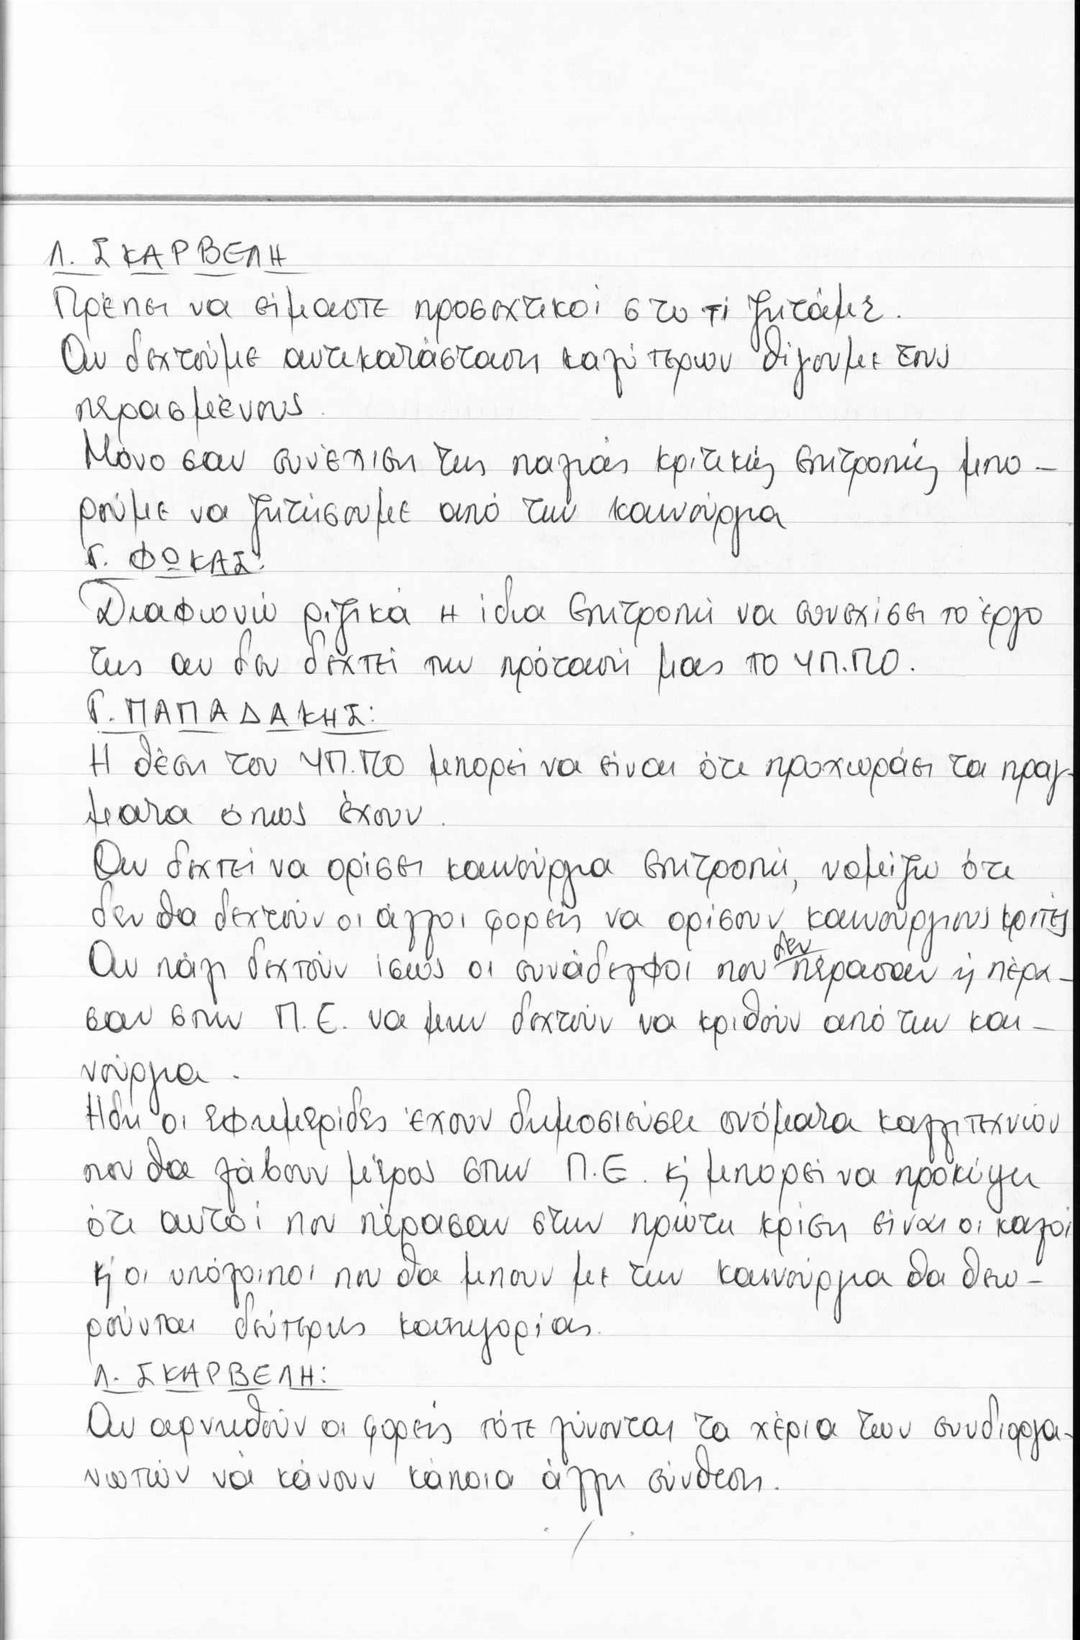 Λ. ΣΚΑΡΒΕΛΗ
Πρέπει να είμαστε προσεχτικοί στο τί ζητάμε.
Αν δεχτούμε αντικατάσταση καλύτερων θίγουμε τους
περασμένους.
Μόνο σαν συνέχιση της παλιάς κριτικής επιτροπής μπο-
ρούμε να ζητήσουμε από την καινούργια
Γ. ΦΩΚΑΣ:
Διαφωνώ ριζικά η ίδια επιτροπή να συνεχίσει το έργο
της αν δεν δεχτεί την πρότασή μας το ΥΠ.ΠΟ.
Γ. ΠΑΠΑΔΑΚΗΣ:
Η θέση του ΥΠ.ΠΟ μπορεί να είναι ότι προχωράει τα πραγ-
ματα όπως έχουν.
Αν δεχτεί να ορίσει καινούργια επιτροπή, νομίζω ότι
δεν θα δεχτούν οι άλλοι φορείς να ορίσουν καινούργιους κριτές
Αν πάλι δεχτούν ίσως οι συνάδελφοι που δεν πέρασαν ή πέρα-
σαν στην Π.Ε. να μην δεχτούν να κριθούν από την και-
νούργια.
Ηδη οι εφημερίδες έχουν δημοσιεύσει ονόματα καλλιτεχνών
που θα λάβουν μέρος στην Π.Ε. κ' μπορεί να προκύψει
ότι αυτοί που πέρασαν στην πρώτη κρίση είναι οι καλοί
κ' οι υπόλοιποι που θα μπουν με την καινούργια θα θεω-
ρούνται δεύτερης κατηγορίας.
Λ. ΣΚΑΡΒΕΛΗ:
Αν αρνηθούν οι φορείς τότε λύνονται τα χέρια των συνδιοργα-
νωτών να κάνουν κάποια άλλη σύνθεση.
./.